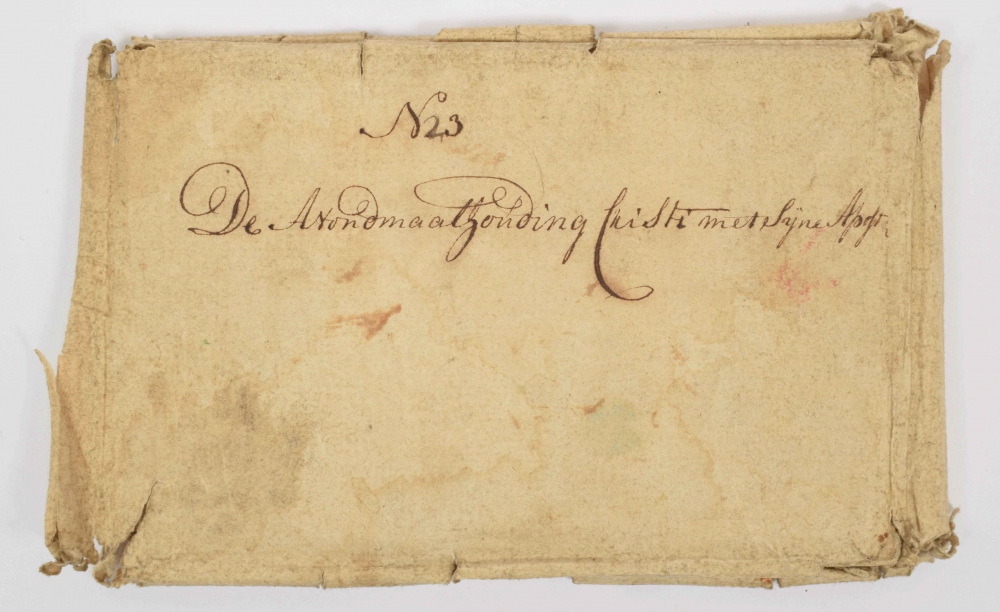 N 23
De Avondmaalhouding Cristi met Syne Apost,